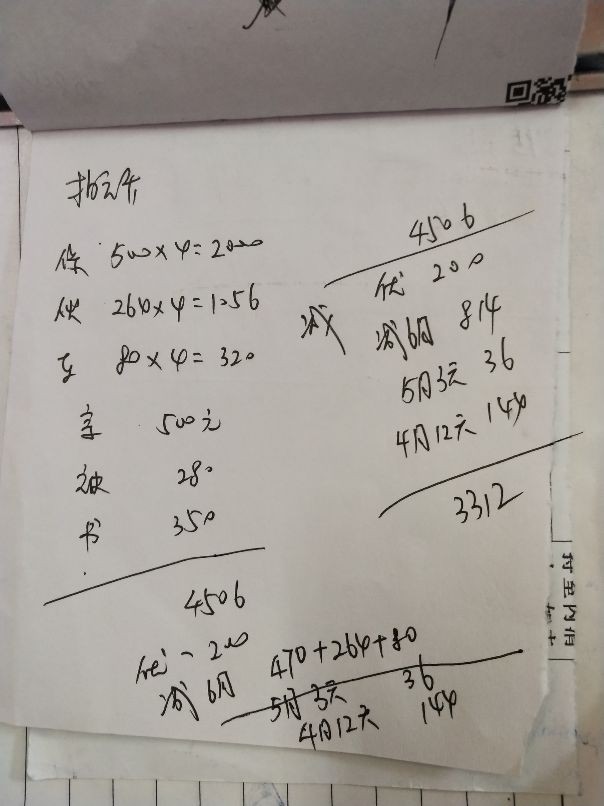 保 500×4=2000
伙 264×4=1056
80×4=320
500元
被 280
书 350
4506
优-200
减6月 470+264+80
5月3天 36
4月12天 144
4506
减
优 200
减6月 814
5月3天 36
4月12天 144
3312